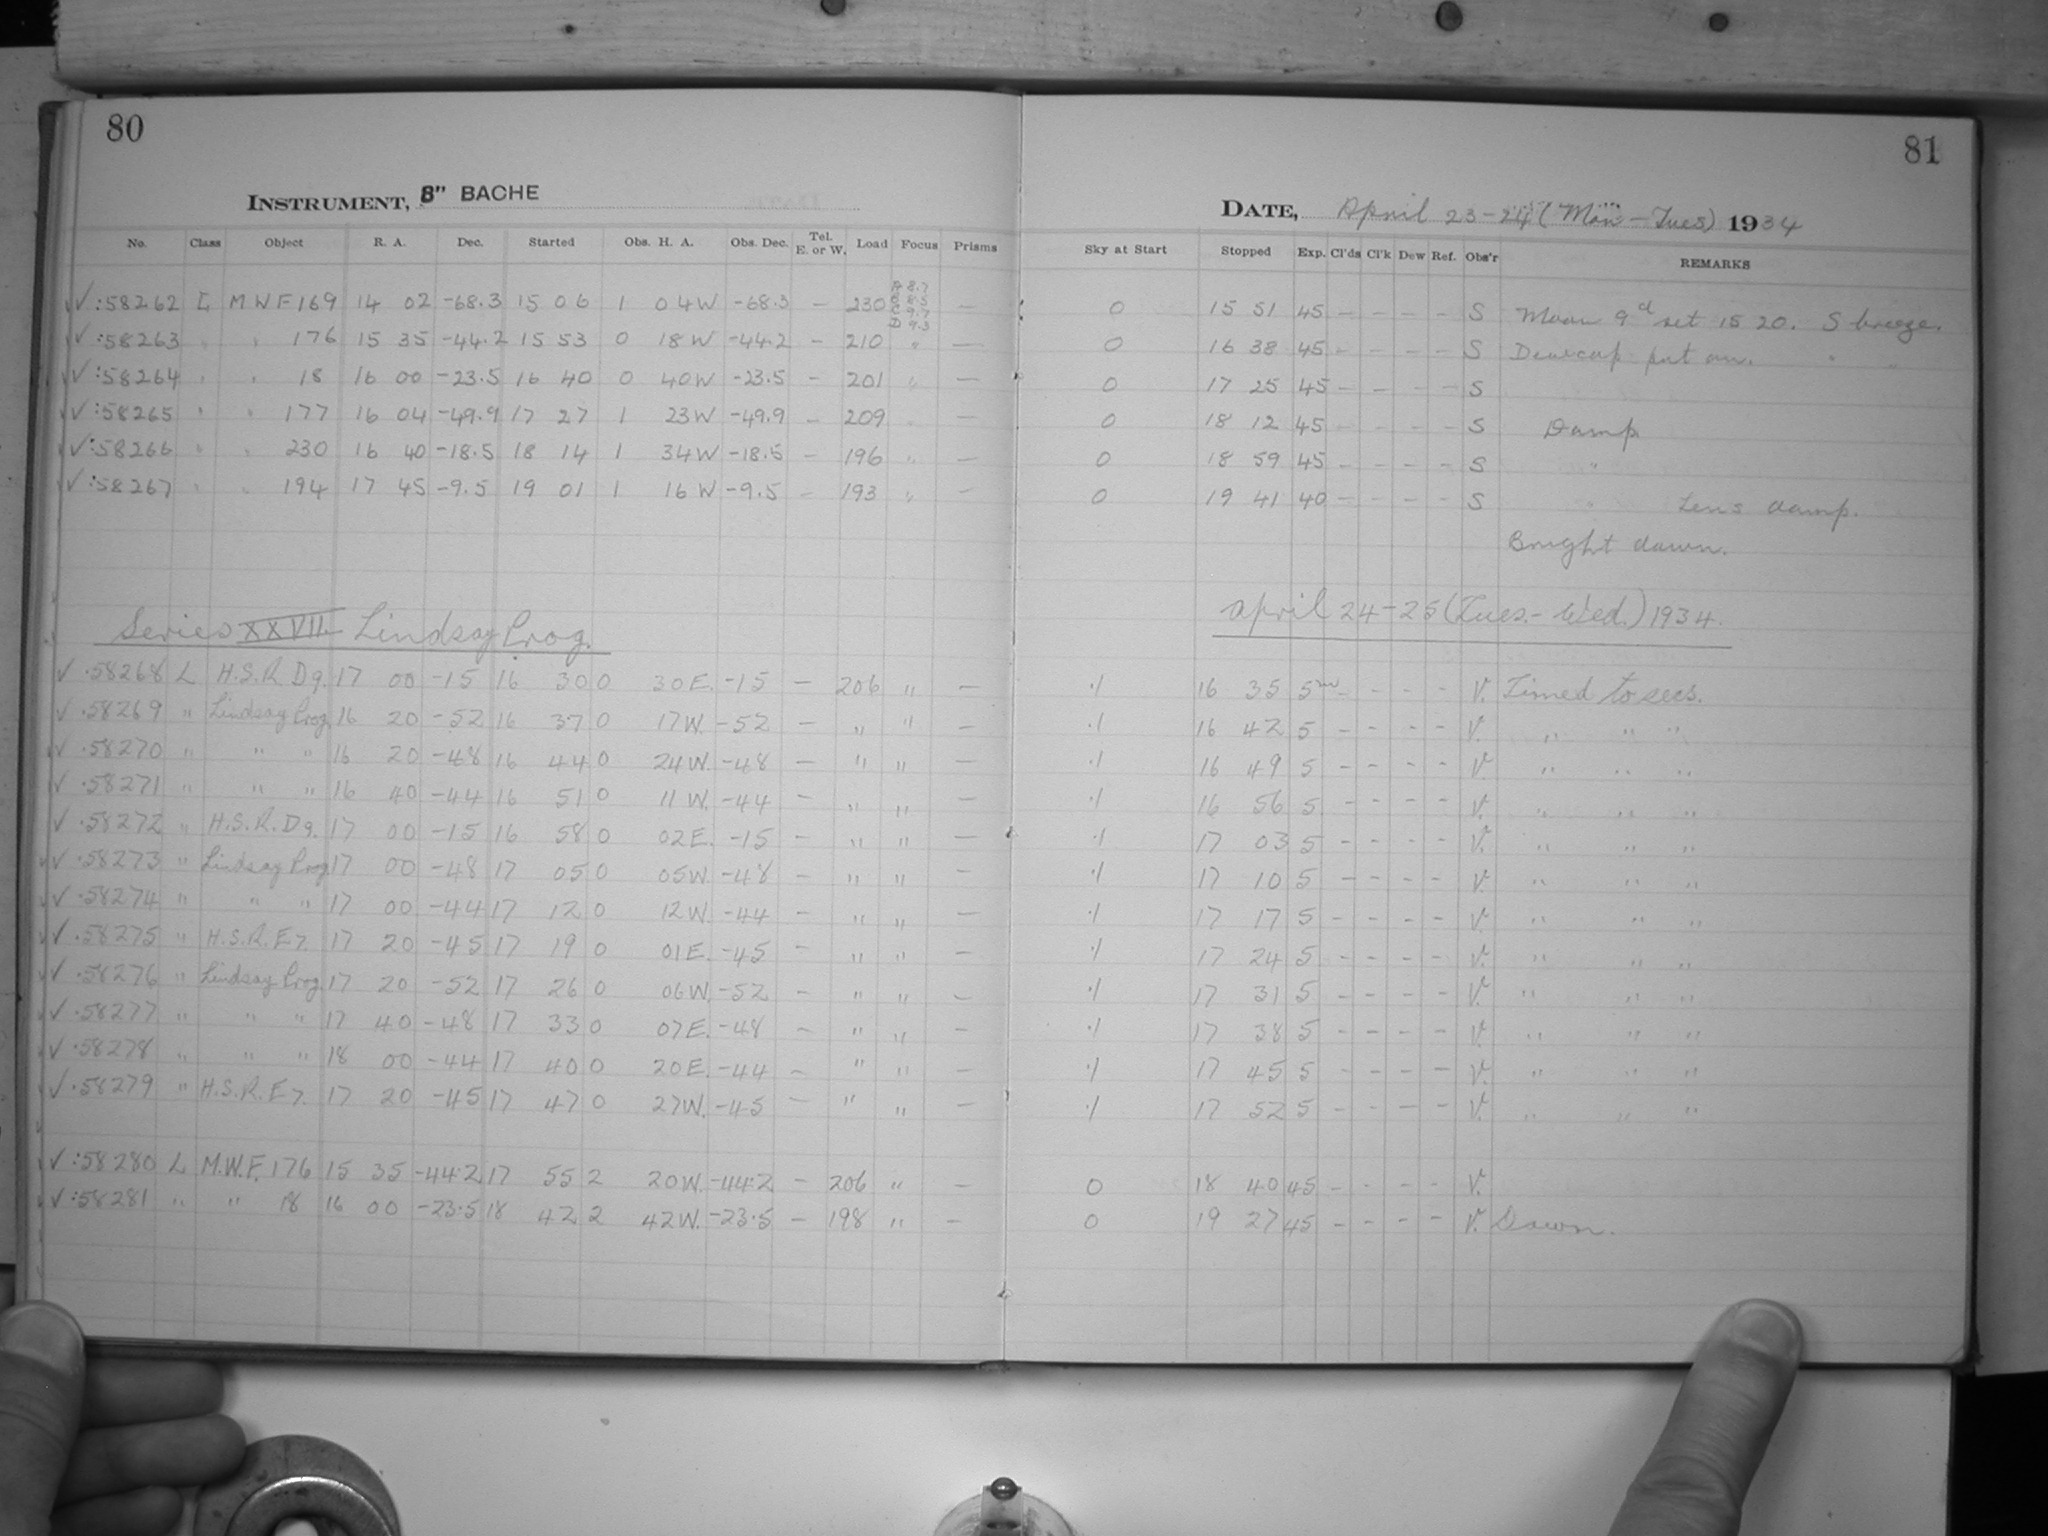 80
81
INSTRUMENT, 8" BACHE
DATE, April 23-24 (Mon-Tues) 1934
No. Class Object R. A. Dec. Started Obs. H. A. Obs. Dec. Tel. E. or W. Load Focus Prisms Sky at Start Stopped Exp. Cl'ds Cl'k Dew Ref. Obs'r REMARKS
A 8.7
B 8.5
C 9.7
D 9.3
✓:58262 L MWF169 14 02 -68.3 15 06 1 04W -68.3 - 230 - 0 15 51 45 - - - - S Moon 9d set 15 20. S breeze.
✓:58263 " " 176 15 35 -44.2 15 53 0 18W -44.2 - 210 " - 0 16 38 45 - - - - S Dewcap put on. " "
✓:58264 " " 18 16 00 -23.5 16 40 0 40W -23.5 - 201 " - 0 17 25 45 - - - - S
✓:58265 " " 177 16 04 -49.9 17 27 1 23W -49.9 - 209 " - 0 18 12 45 - - - - S Damp
✓:58266 " " 230 16 40 -18.5 18 14 1 34W -18.5 - 196 " - 0 18 59 45 - - - - S "
✓:58267 " " 194 17 45 -9.5 19 01 1 16W -9.5 - 193 " - 0 19 41 40 - - - - S " Lens damp.
Bright dawn.
Series XXVII Lindsay Prog.
April 24-25 (Tues.-Wed.) 1934.
✓.58268 L H.S.R. D9. 17 00 -15 16 30 0 30E. -15 - 206 " - ·/ 16 35 5m - - - - V. Timed to secs.
✓.58269 " Lindsay Prog. 16 20 -52 16 37 0 17W. -52 - " " - ·/ 16 42 5 - - - - V. " " "
✓.58270 " " " 16 20 -48 16 44 0 24W. -48 - " " - ·/ 16 49 5 - - - - V. " " "
✓.58271 " " " 16 40 -44 16 51 0 11W. -44 - " " - ·/ 16 56 5 - - - - V. " " "
✓.58272 " H.S.R. D9. 17 00 -15 16 58 0 02E. -15 - " " - ·/ 17 03 5 - - - - V. " " "
✓.58273 " Lindsay Prog 17 00 -48 17 05 0 05W. -48 - " " - ·/ 17 10 5 - - - - V. " " "
✓.58274 " " " 17 00 -44 17 12 0 12W. -44 - " " - ·/ 17 17 5 - - - - V. " " "
✓.58275 " H.S.R. E7. 17 20 -45 17 19 0 01E. -45 - " " - ·/ 17 24 5 - - - - V. " " "
✓.58276 " Lindsay Prog. 17 20 -52 17 26 0 06W. -52 - " " - ·/ 17 31 5 - - - - V. " " "
✓.58277 " " " 17 40 -48 17 33 0 07E. -48 - " " - ·/ 17 38 5 - - - - V. " " "
✓.58278 " " " 18 00 -44 17 40 0 20E. -44 - " " - ·/ 17 45 5 - - - - V. " " "
✓.58279 " H.S.R. E7. 17 20 -45 17 47 0 27W. -45 - " " - ·/ 17 52 5 - - - - V. " " "
✓:58280 L M.W.F. 176 15 35 -44.2 17 55 2 20W. -44.2 - 206 " - 0 18 40 45 - - - - V.
✓:58281 " " 18 16 00 -23.5 18 42 2 42W. -23.5 - 198 " - 0 19 27 45 - - - - V. Dawn.